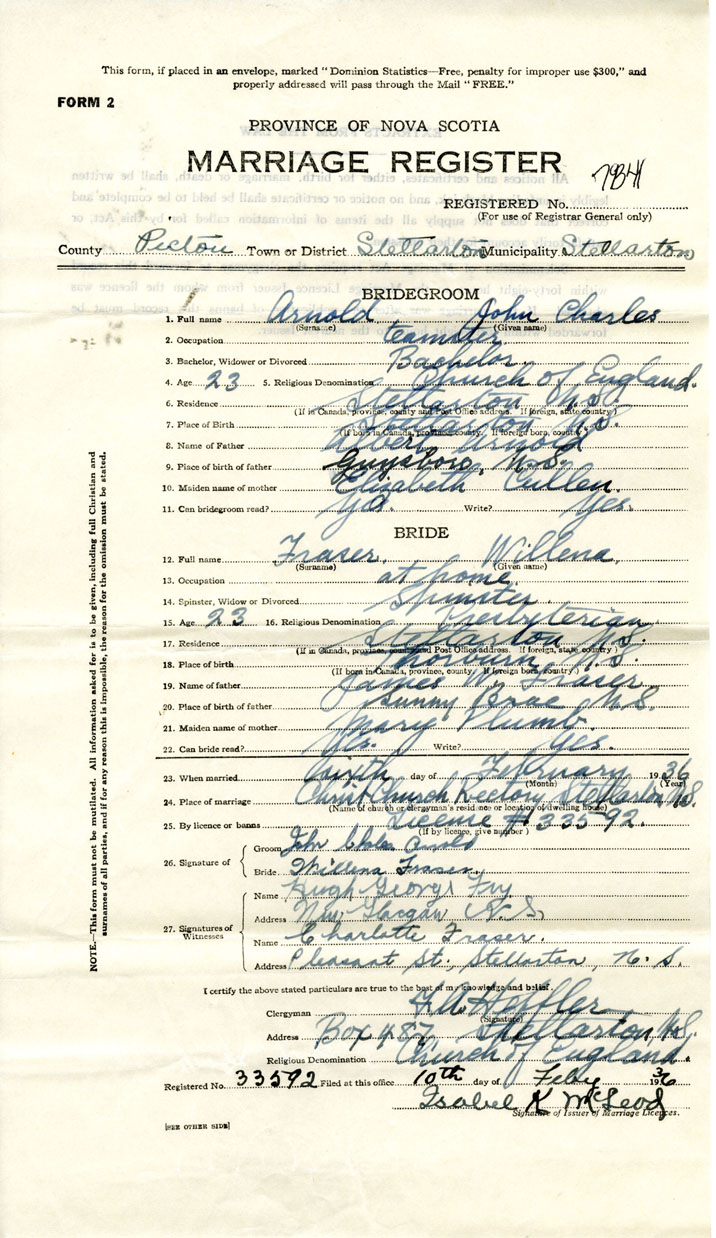 This form, if placed in an envelope, marked "Dominion Statistics—Free, penalty for improper use $300," and
properly addressed will pass through the Mail "FREE."
FORM 2
PROVINCE OF NOVA SCOTIA
MARRIAGE REGISTER
REGISTERED No.
(For use of Registrar General only)
County Pictou Town or District Stellarton Municipality Stellarton
BRIDEGROOM
1. Full name Arnold John Charles
(Surname) (Given name)
2. Occupation teamster
3. Bachelor, Widower or Divorced Bachelor
4. Age 23 5. Religious Denomination Church of England
6. Residence Stellarton N.S.
(If in Canada, province, county and Post Office address. If foreign, state country)
7. Place of Birth Stellarton N.S.
(If born in Canada, province, county. If foreign born, country)
8. Name of Father Arnold
9. Place of birth of father Guysboro, N.S.
10. Maiden name of mother Elizabeth Cullen
11. Can bridegroom read? yes. Write? yes.
BRIDE
12. Full name Fraser, Willena
(Surname) (Given name)
13. Occupation at home
14. Spinster, Widow or Divorced Spinster
15. Age 23 16. Religious Denomination Presbyterian
17. Residence Stellarton N.S.
(If in Canada, province, county and Post Office address. If foreign, state country)
18. Place of birth N.S.
(If born in Canada, province, county. If foreign born, country)
19. Name of father James W. Fraser
20. Place of birth of father Sunny Brae N.S.
21. Maiden name of mother Mary Plumb.
22. Can bride read? yes. Write? yes.
23. When married sixth day of February 1936
(Month) (Year)
24. Place of marriage Christ Church Rectory Stellarton N.S.
(Name of church or clergyman's residence or location of dwelling house)
25. By licence or banns License # 33592
(If by licence, give number)
26. Signature of Groom John Charles Arnold
Bride Willena Fraser
27. Signatures of Witnesses Name Hugh George Fry
Address New Glasgow N.S.
Name Charlotte Fraser.
Address Pleasant St. Stellarton, N. S.
I certify the above stated particulars are true to the best of my knowledge and belief.
Clergyman Heffler
(Signature)
Address Box 487 Stellarton N.S.
Religious Denomination Church of England.
Registered No. 33592 Filed at this office 10th day of Feby 1936
Isabel K McLeod
Signature of Issuer of Marriage Licences.
[SEE OTHER SIDE]
NOTE.—This form must not be mutilated. All information asked for is to be given, including full Christian and
surnames of all parties, and if for any reason this is impossible, the reason for the omission must be stated.